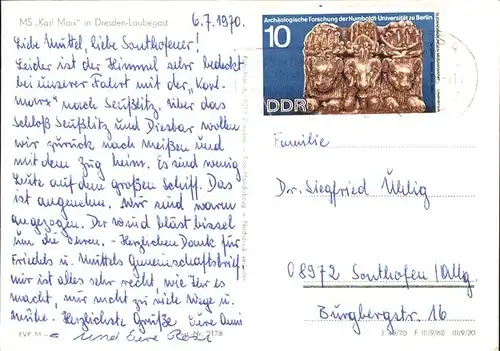 MS „Karl Marx" in Dresden-Laubegast
6.7.1970.
Liebe Muttel, liebe Sonthofener!
Leider ist der Himmel sehr bedeckt
bei unserer Fahrt mit der „Karl-
Marx" nach Seußlitz. Über das
Schloß Seußlitz und Diesbar wollen
wir zurück nach Meißen und
mit dem Zug heim. Es sind wenig
Leute auf dem großen Schiff. Das
ist angenehm. Wir sind warm
angezogen. Der Wind bläst bissel
um die Ohren. - Herzlichen Dank für
Friedels u. Muttels Gemeinschaftsbrief
mir ist alles sehr recht, wie Ihr es
macht, nur nicht zu viele Wege u.
Mühe. Herzlichste Grüße Eure Anni
und Eure
EVP M
Archäologische Forschung der Humboldt-Universität zu Berlin
10
DDR
Familie
Dr. Siegfried Uhlig
08972 Sonthofen/Allg.
Burgbergstr. 16
III/9/62 III/9/20